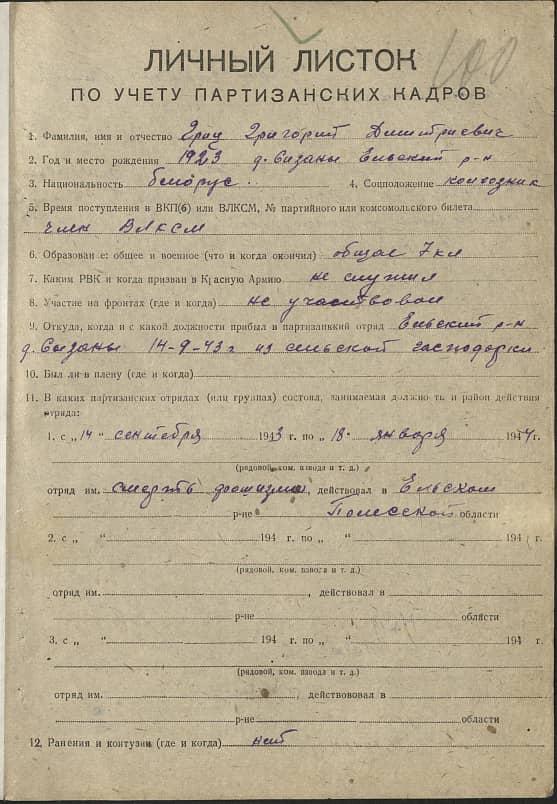 100
ЛИЧНЫЙ ЛИСТОК
ПО УЧЕТУ ПАРТИЗАНСКИХ КАДРОВ
1. Фамилия, имя и отчество Григорий Дмитриевич
2. Год и место рождения 1923 д. Сизаны Ельский р-н
3. Национальность белорус 4. Соцположение колхозник
5. Время поступления в ВКП(б) или ВЛКСМ, № партийного или комсомольского билета
член ВЛКСМ
6. Образование: общее и военное (что и когда окончил) общее 7 кл
7. Каким РВК и когда призван в Красную Армию не служил
8. Участие на фронтах (где и когда) не участвовал
9. Откуда, когда и с какой должности прибыл в партизанский отряд Ельский р-н
д. Сизаны 14-9-43 г из сельской господорки
10. Был ли в плену (где и когда)
11. В каких партизанских отрядах (или группах) состоял, занимаемая должность и район действия
отряда:
1. с „14" сентября 1943 г. по „18" января 1944 г.
(рядовой, ком. взвода и т. д.)
отряд им. смерть фашизму, действовал в Ельском
р-не Полесской области
2. с „ " 194 г. по „ " 194 г.
(рядовой, ком. взвода и т. д.)
отряд им. , действовал в
р-не области
3. с „ " 194 г. по „ " 194 г.
(рядовой, ком. взвода и т. д.)
отряд им. , действововал в
р-не области
12. Ранения и контузии (где и когда) нет